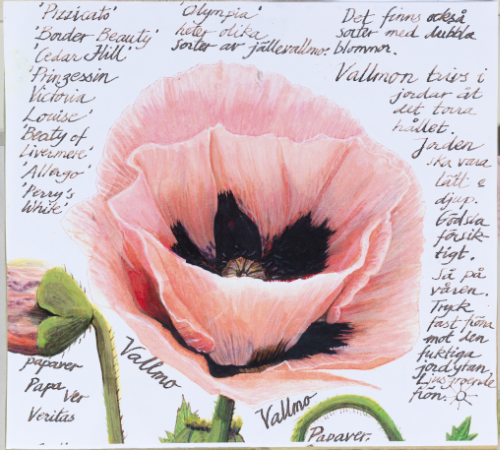 'Pizzicato'
'Border Beauty'
'Cedar Hill'
'Prinzessin
Victoria
Louise'
'Beaty of
Livermere'
'Allergo'
'Perry's
White'
'Olympia'
heter olika
sorter av jättevallmo.
Det finns också
sorter med dubbla
blommor.
Vallmon trivs i
jordar åt
det torra
hållet.
Jorden
ska vara
lätt &
djup.
Gödsla
försik-
tigt.
Så på
våren.
Tryck
fast fröna
mot den
fuktiga
jordytan
Ljusgroende
frön.
papaver
Papa Ver
Veritas
Vallmo
Vallmo
Papaver.